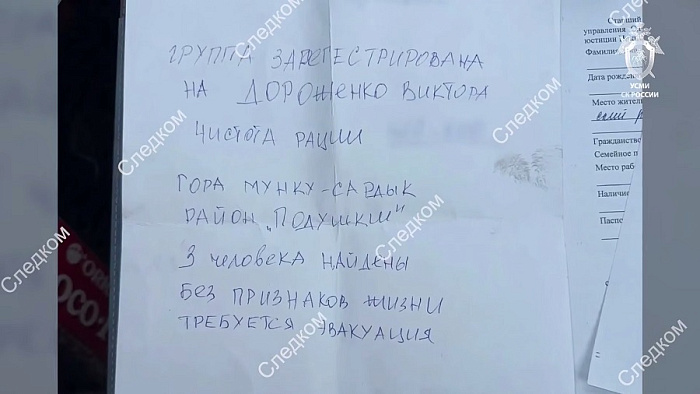 ГРУППА ЗАРЕГЕСТРИРОВАНА
НА ДОРОЖЕНКО ВИКТОРА
ЧИСТОТА РАЦИИ
ГОРА МУНКУ-САРДЫК
РАЙОН „ПОДУШКИ"
3 ЧЕЛОВЕКА НАЙДЕНЫ
БЕЗ ПРИЗНАКОВ ЖИЗНИ
ТРЕБУЕТСЯ ЭВАКУАЦИЯ
Старший
управления
юстиции
Фамилия
Дата рожден
Место житель
Гражданство
Семейное п
Место раб
Наличие
Паспо
УСМИ
СК РОССИИ
Следком
Следком
Следком
Следком
Следком
Следком
Следком
Следком